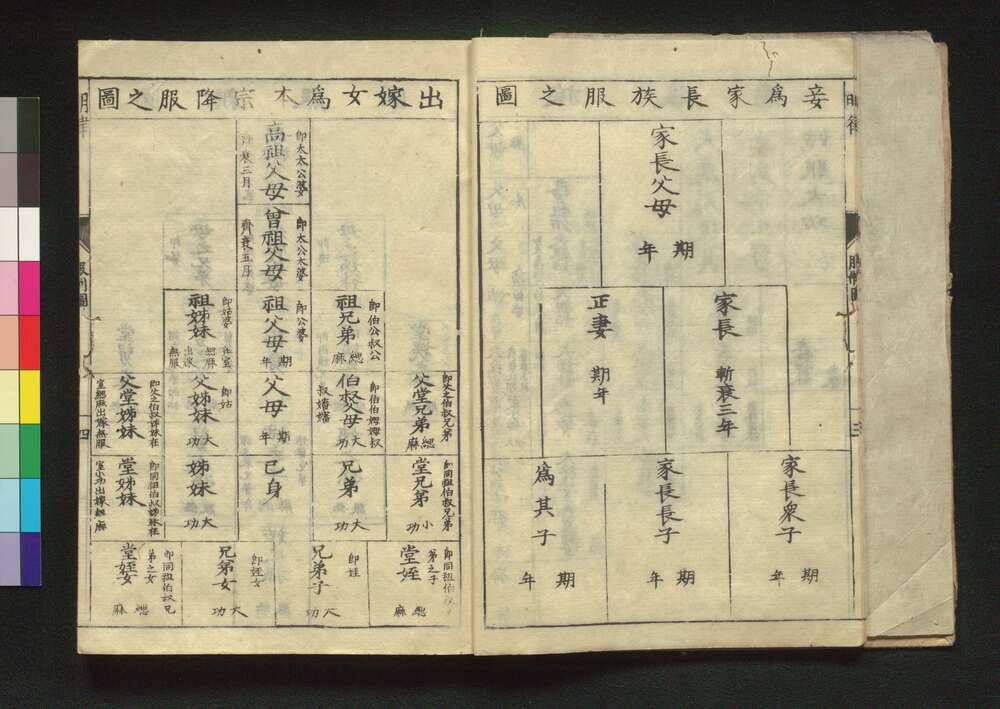 妾為家長族服之圖
家長父母
期年
家長
斬衰三年
正妻
期年
家長衆子
期年
家長長子
期年
為其子
期年
三
出嫁女為本宗降服之圖
即太太公婆
高祖父母
衰三月
即太公太婆
曾祖父母
齊衰五月
即伯公叔公
祖兄弟
緦麻
即公婆
祖父母
期年
即姑婆
祖姊妹
在室緦麻
出嫁無服
即父之伯叔兄弟
父堂兄弟
緦麻
即伯伯姆姆叔
叔嬸嬸
伯叔父母
大功
父母
期年
即姑
父姊妹
大功
即父之伯叔姊妹在
室緦麻出嫁無服
父堂姊妹
即同祖伯叔兄弟
堂兄弟
小功
兄弟
大功
己身
姊妹
大功
即同祖伯叔姊妹在
室小功出嫁緦麻
堂姊妹
即同祖伯叔
弟之子
堂姪
緦麻
即姪
兄弟子
大功
即姪女
兄弟女
大功
即同祖伯叔兄
弟之女
堂姪女
緦麻
明律
服制圖
四